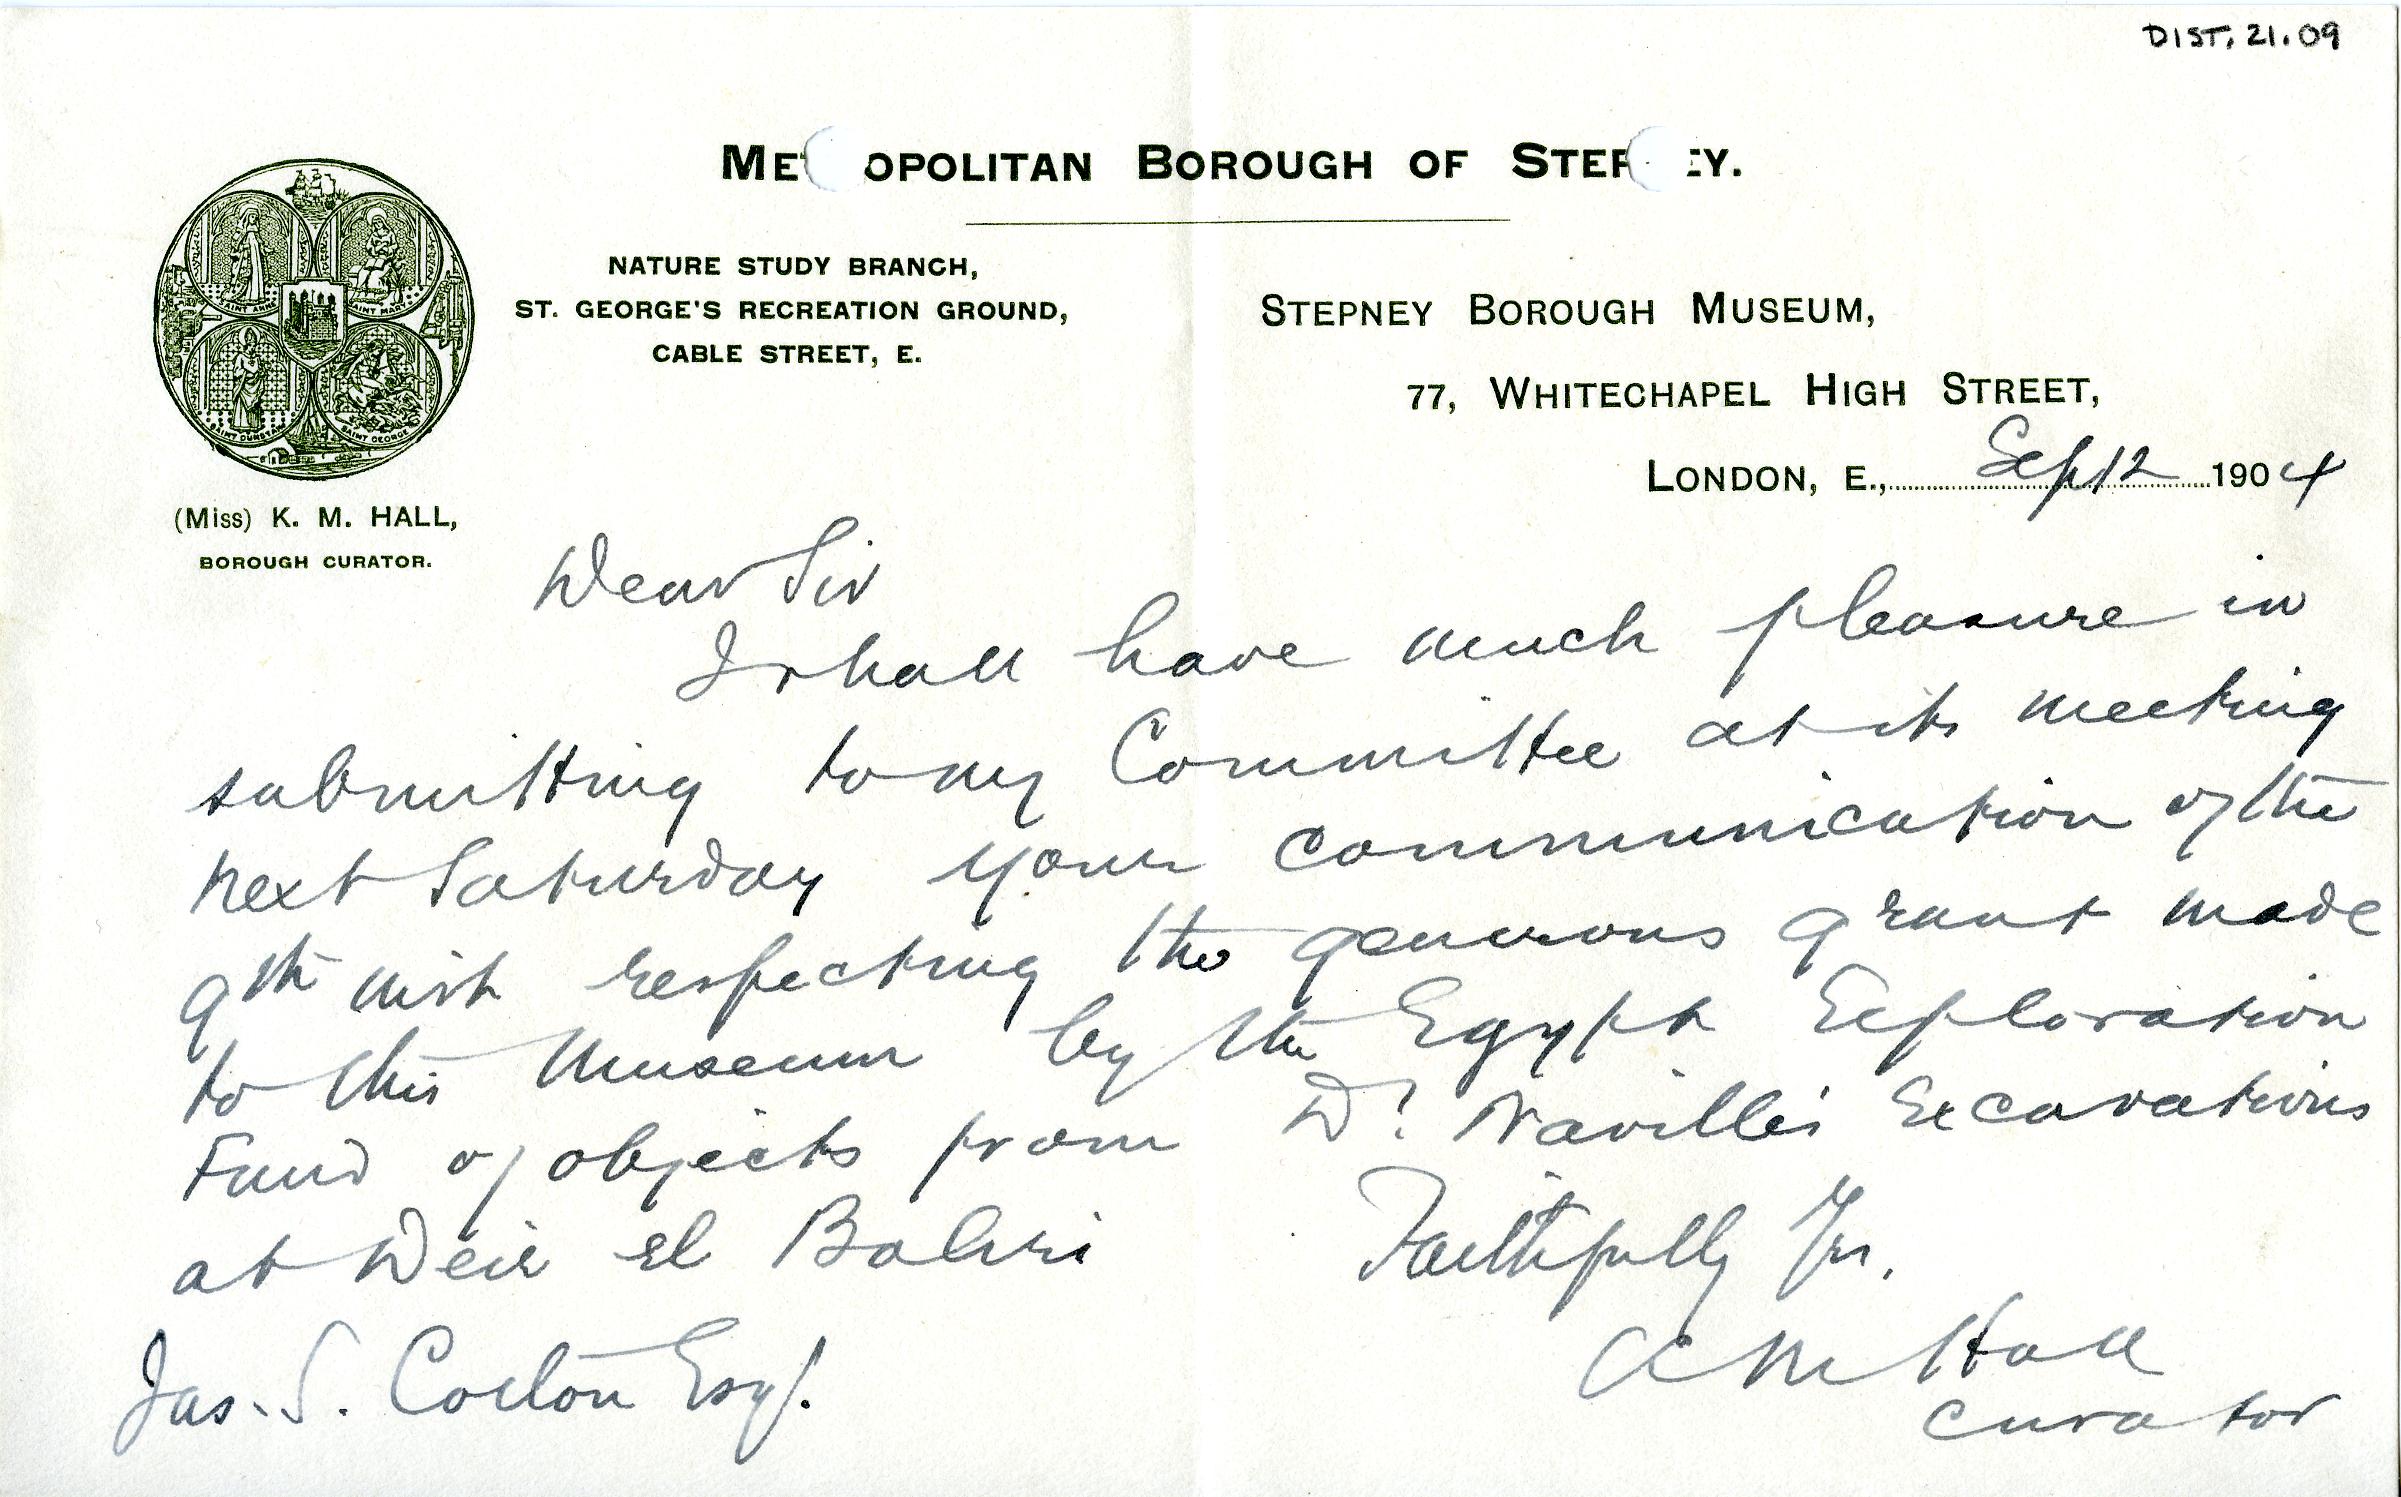 DIST. 21.09
METROPOLITAN BOROUGH OF STEPNEY.
NATURE STUDY BRANCH,
ST. GEORGE'S RECREATION GROUND,
CABLE STREET, E.
STEPNEY BOROUGH MUSEUM,
77, WHITECHAPEL HIGH STREET,
LONDON, E., Sept 12 1904
SAINT ANNE
SAINT MARY
SAINT DUNSTAN
SAINT GEORGE
(Miss) K. M. HALL,
BOROUGH CURATOR.
Dear Sir
I shall have much pleasure in
submitting to my Committee at its meeting
next Saturday your communication of the
9th inst respecting the generous grant made
to this Museum by the Egypt Exploration
Fund of objects from Dr. Naville's Excavations
at Deir el Bahri
Faithfully Yrs.
M Hall
Curator
Jas. S. Cotton Esq.